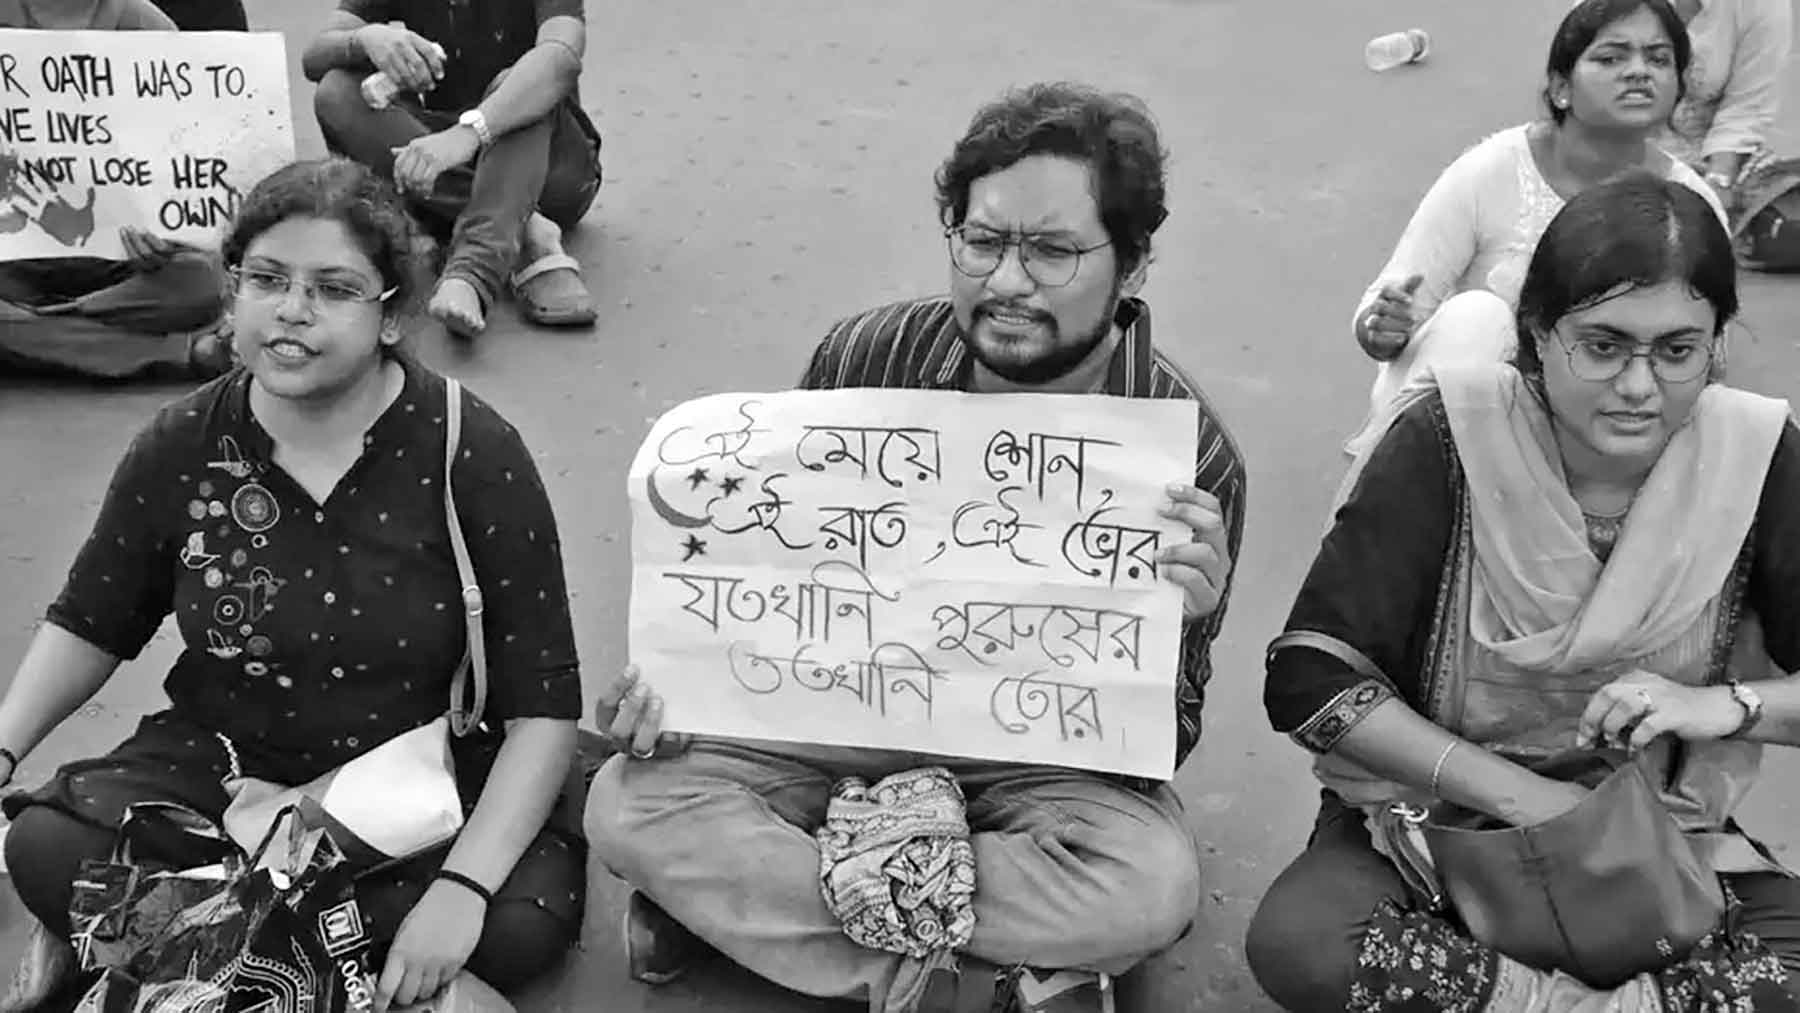 R OATH WAS TO.
VE LIVES
NOT LOSE HER
OWN
এই মেয়ে শোন,
এই রাত, এই ভোর
যতখানি পুরুষের
ততখানি তোর।